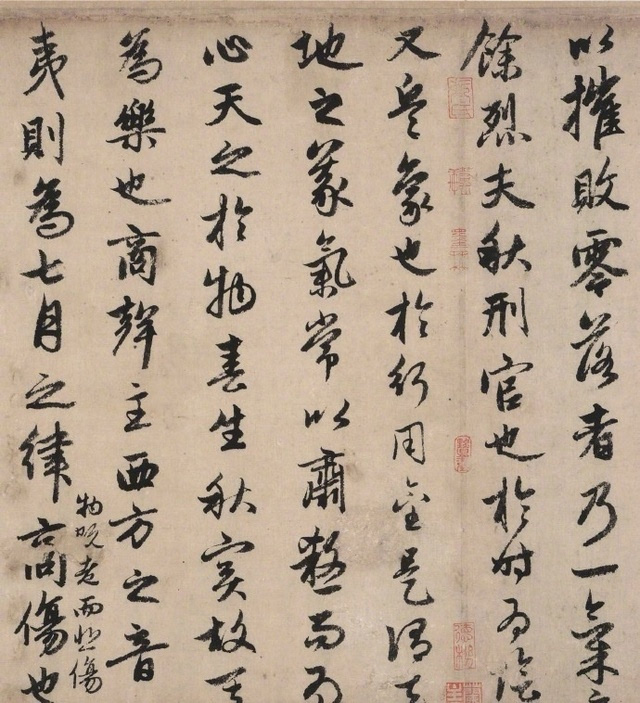 以摧敗零落者乃一氣
餘烈夫秋刑官也於時為陰
又兵象也於行用金是謂天
地之義氣常以肅殺而為
心天之於物春生秋實故其
為樂也商聲主西方之音
物既老而悲傷
夷則為七月之律商傷也